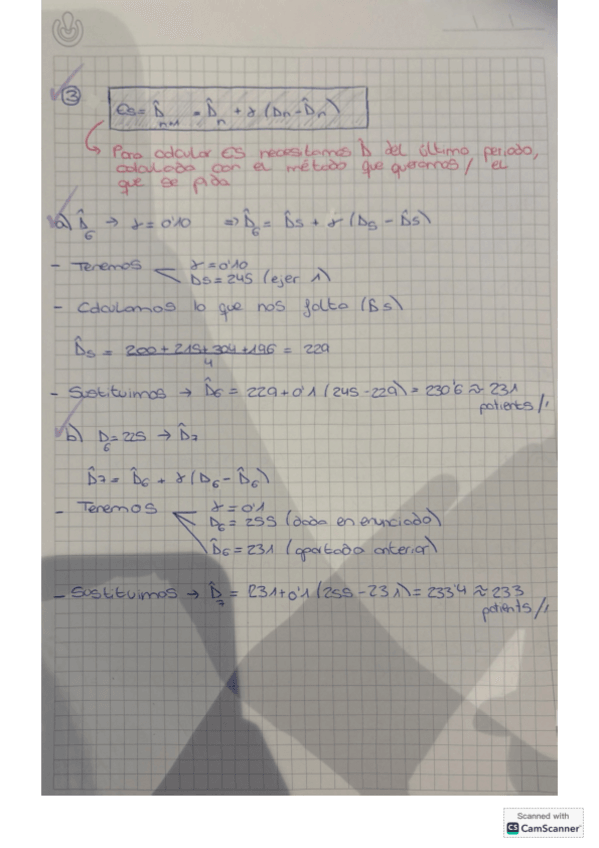 ③ ES = D̂n+1 = D̂n + γ (Dn - D̂n)
Para calcular ES necesitamos D̂ del último periodo,
calculada con el método que queramos / el
que se pida
a) D̂6 → γ = 0'10 ⇒ D̂6 = D̂5 + γ (D5 - D̂5)
- Tenemos γ = 0'10
D5 = 245 (ejer 1)
- Calculamos lo que nos falta (D̂5)
D̂5 = (200 + 215 + 304 + 196) / 4 = 229
- Sustituimos → D̂6 = 229 + 0'1 (245 - 229) = 230'6 ≈ 231
patients //
b) D6 = 225 → D̂7
D̂7 = D̂6 + γ (D6 - D̂6)
- Tenemos γ = 0'1
D6 = 255 (dada en enunciado)
D̂6 = 231 (apartado anterior)
- Sustituimos → D̂7 = 231 + 0'1 (255 - 231) = 233'4 ≈ 233
patients //
Scanned with
CS CamScanner